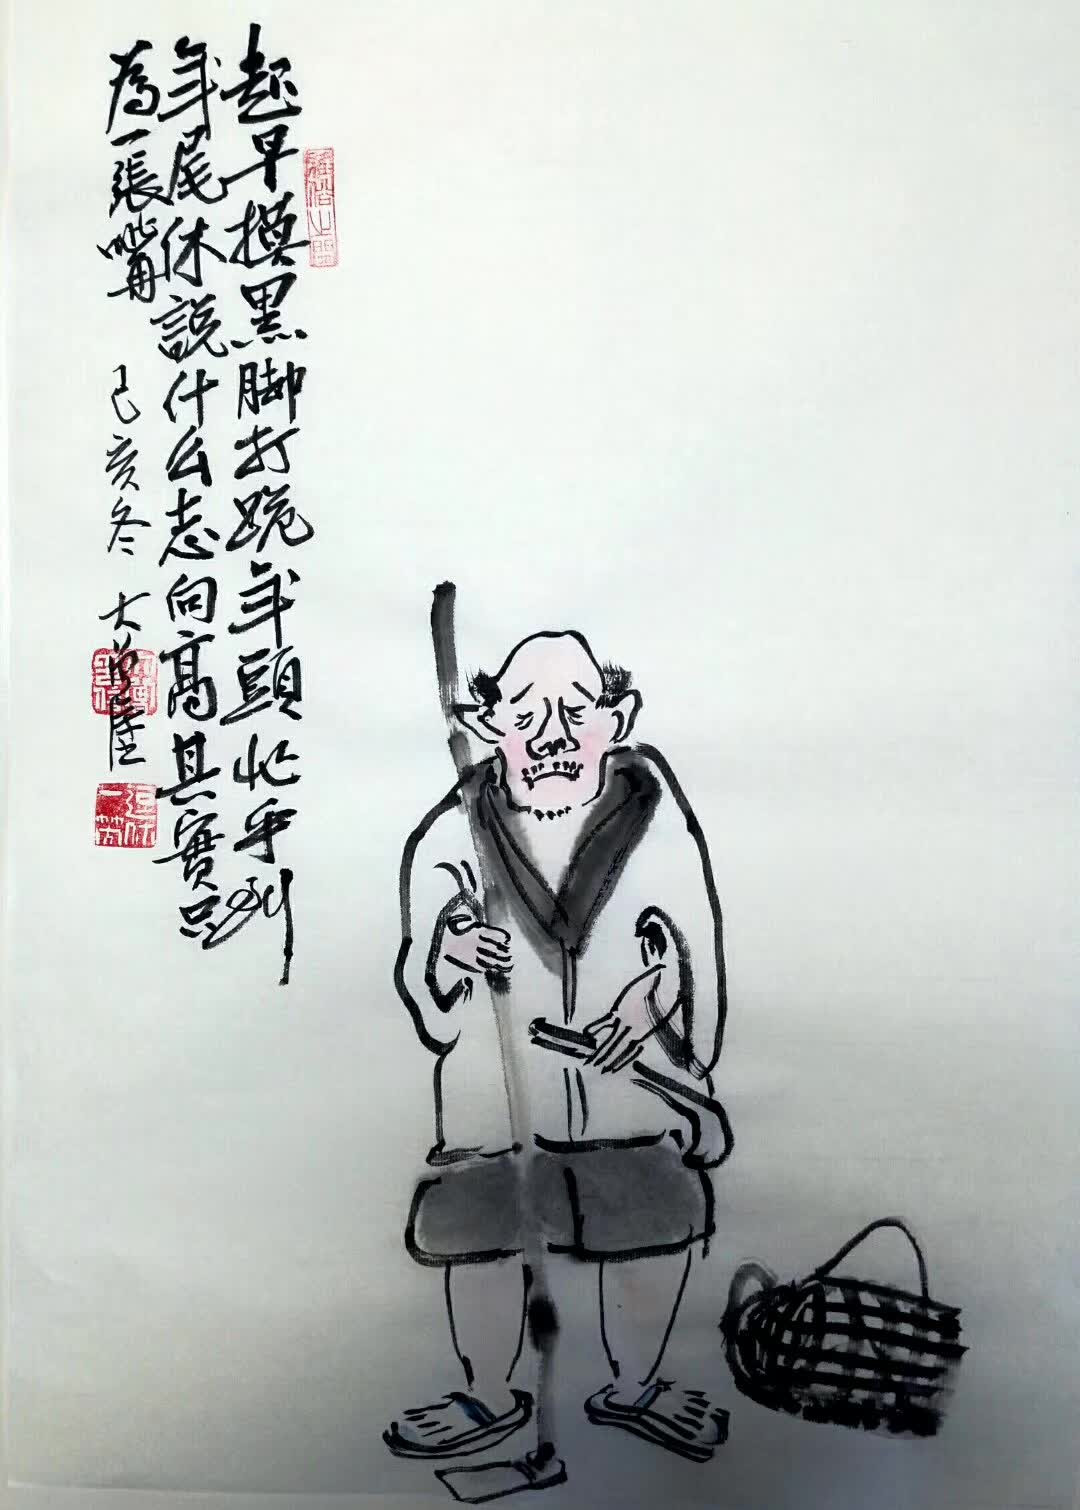 起早摸黑脚打跪年頭忙乎到
年尾休説什么志向高其實只
為一張嘴
己亥冬 大曾屋